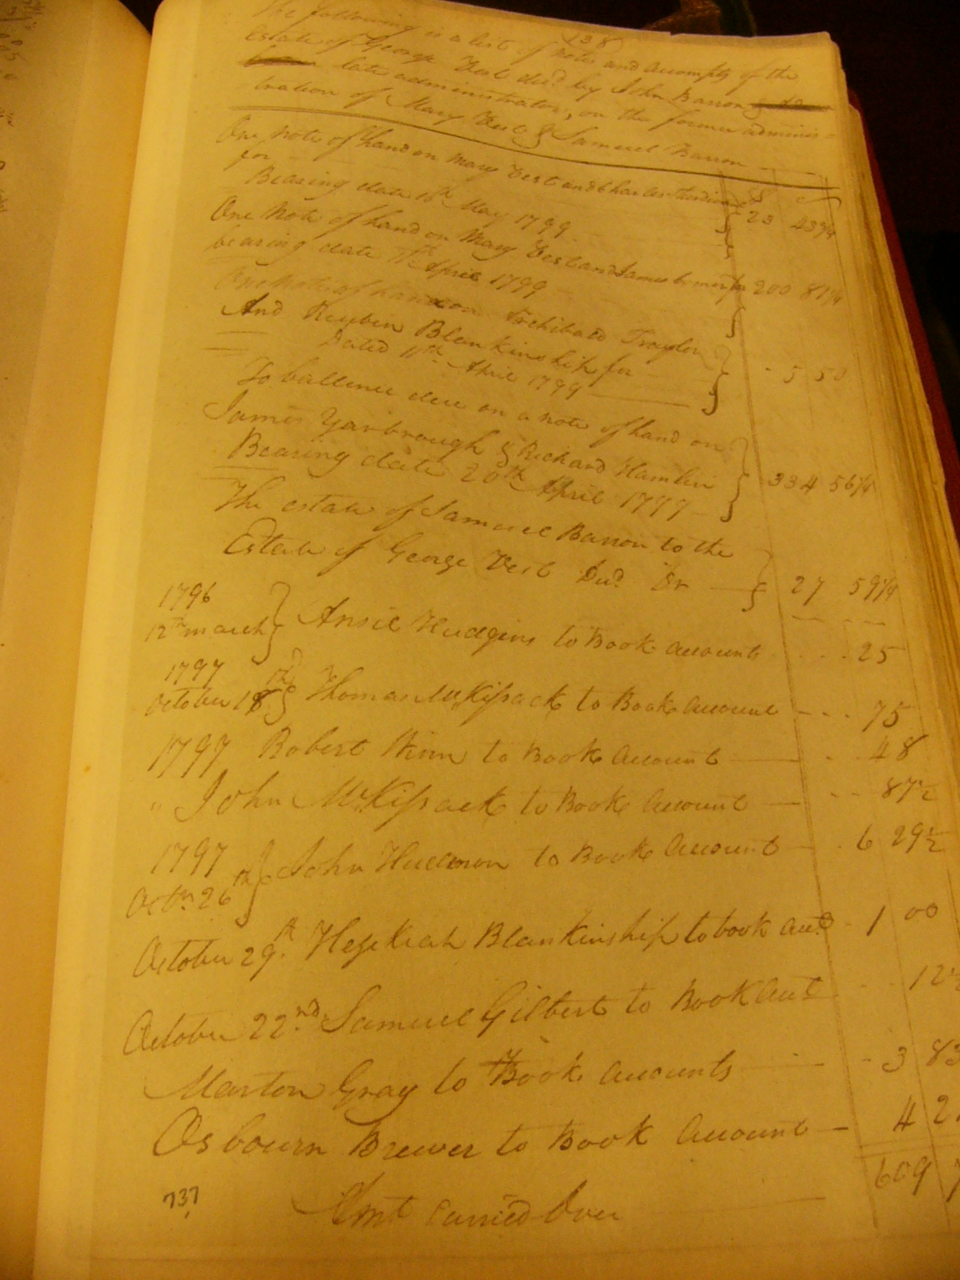 238
The following is a list of notes and accompts of the
Estate of George Vest decd. by John Barron
late administrator, on the former adminis=
tration of Mary Vest & Samuel Barron
$ c
One note of hand on Mary Vest and Charles
for 23 43¾
Bearing date 16th May 1799
One Note of hand on Mary Vest and James for 200 81¼
bearing date April 1799
One Note of hand on Archibald Traylor
And Reubin Blankinship for 5 50
Dated 11th April 1799
To ballance due on a note of hand on
James Yarbrough & Richard Hamlin 334 56¼
Bearing date 20th April 1777
The estate of Samuel Barron to the
Estate of George Vest Decd. Dr 27 59¼
1796
12th march Ansil Hudgins to Book account 25
1797
October 18th Thomas McKissack to Book account 75
1797 Robert to Book account 48
" John McKissack to Book account 87½
1797
Octbr. 26th John Hudson to Book account 6 29½
October 29th Hezekiah Blankinship to book acct 1 00
October 22nd Samuel Gilbert to Book acct 12½
Marton Gray to Book accounts 3 83
Osbourn Brewer to Book account 4 2
609 7
737 Amt carried Over